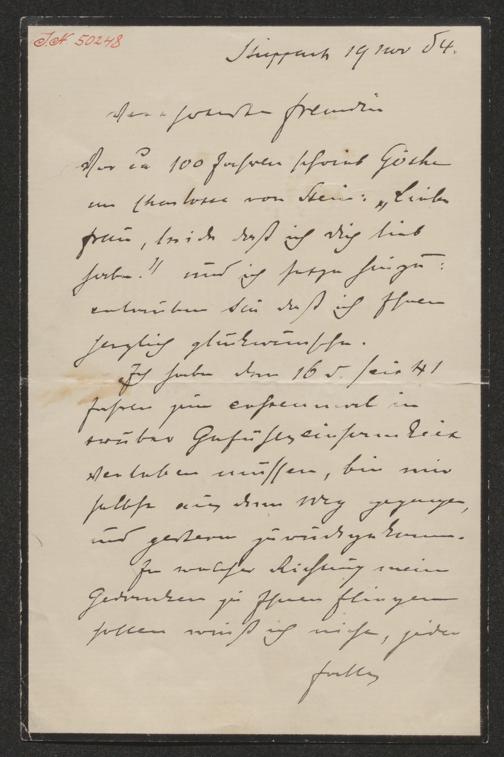 I.N 50248
19 nov 84.
Verehrteste Freundin
Vor ca 100 Jahren schrieb Göthe
an Charlotte von Stein: „Liebe
Frau, leide daß ich dich lieb
habe!" und ich setze hinzu:
erlauben Sie daß ich Ihnen
herzlich glückwünsche.
Ich habe den 16 d. seit 41
Jahren zum erstenmal in
trüber Gefühlseinsamkeit
verleben müssen, bin mir
selbst aus dem Weg gegangen,
und gestern zurückgekommen.
In welcher Richtung meine
Gedanken zu Ihnen fliegen
sollen weiß ich nicht, jeden
falls